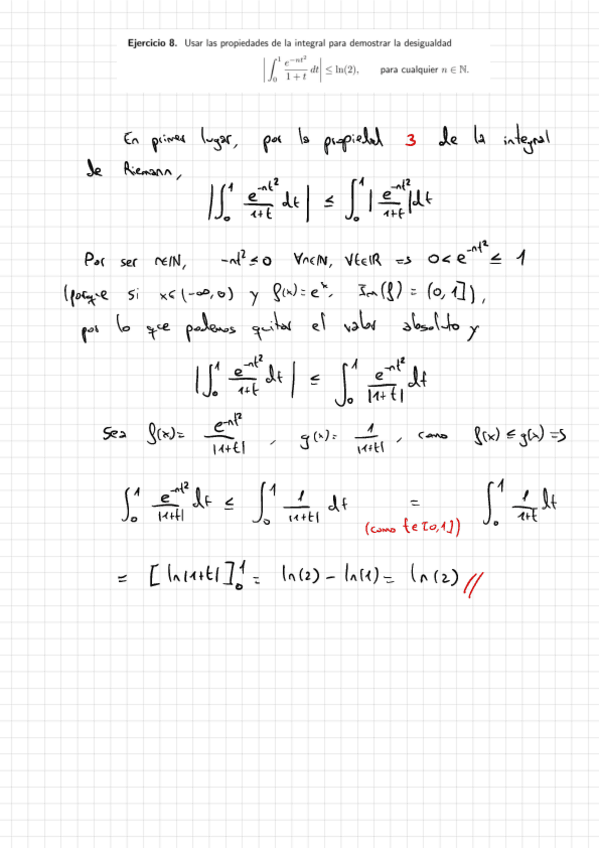 Ejercicio 8. Usar las propiedades de la integral para demostrar la desigualdad
|∫₀¹ e^(-nt²)/(1+t) dt| ≤ ln(2), para cualquier n ∈ ℕ.
En primer lugar, por la propiedad 3 de la integral
de Riemann,
|∫₀¹ e^(-nt²)/(1+t) dt| ≤ ∫₀¹ |e^(-nt²)/(1+t)| dt
Por ser n∈ℕ, -nt² ≤ 0 ∀n∈ℕ, ∀t∈ℝ => 0 < e^(-nt²) ≤ 1
(porque si x∈(-∞,0) y f(x)=e^x, Im(f) = (0,1]),
por lo que podemos quitar el valor absoluto y
|∫₀¹ e^(-nt²)/(1+t) dt| ≤ ∫₀¹ e^(-nt²)/|1+t| dt
Sea f(x)= e^(-nt²)/|1+t| , g(x)= 1/|1+t| , como f(x) ≤ g(x) =>
∫₀¹ e^(-nt²)/|1+t| dt ≤ ∫₀¹ 1/|1+t| dt = ∫₀¹ 1/(1+t) dt
(como t∈[0,1])
= [ln|1+t|]₀¹ = ln(2) - ln(1) = ln(2) //